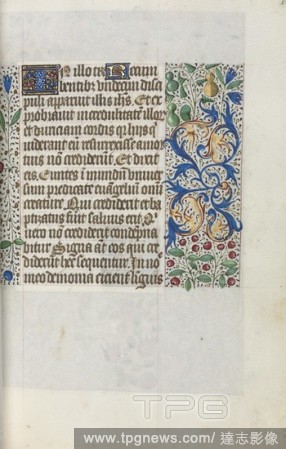 In illo tꝑe. Recum
bentibꝫ undecim disci
pulis apparuit illis ihs. Et ex
probravit incredulitatē illoꝝ
et duriciam cordis qꝛ hijs q̇
viderant eū resurrexisse a mor
tuis nō crediderūt. Et dixit
eis. Euntes ī mundū univer
sum predicate euāgeliū om̄i
creature. Qui crediderit et ba
ptizatus fuerit salvus erit. Q̇
vero nō crediderit condempna
bitur. Signa aūt eos qui cre
diderint hec sequentur. In no
mine meo demonia eicient. linguis
TPG
www.tpgnews.com/ 達志影像